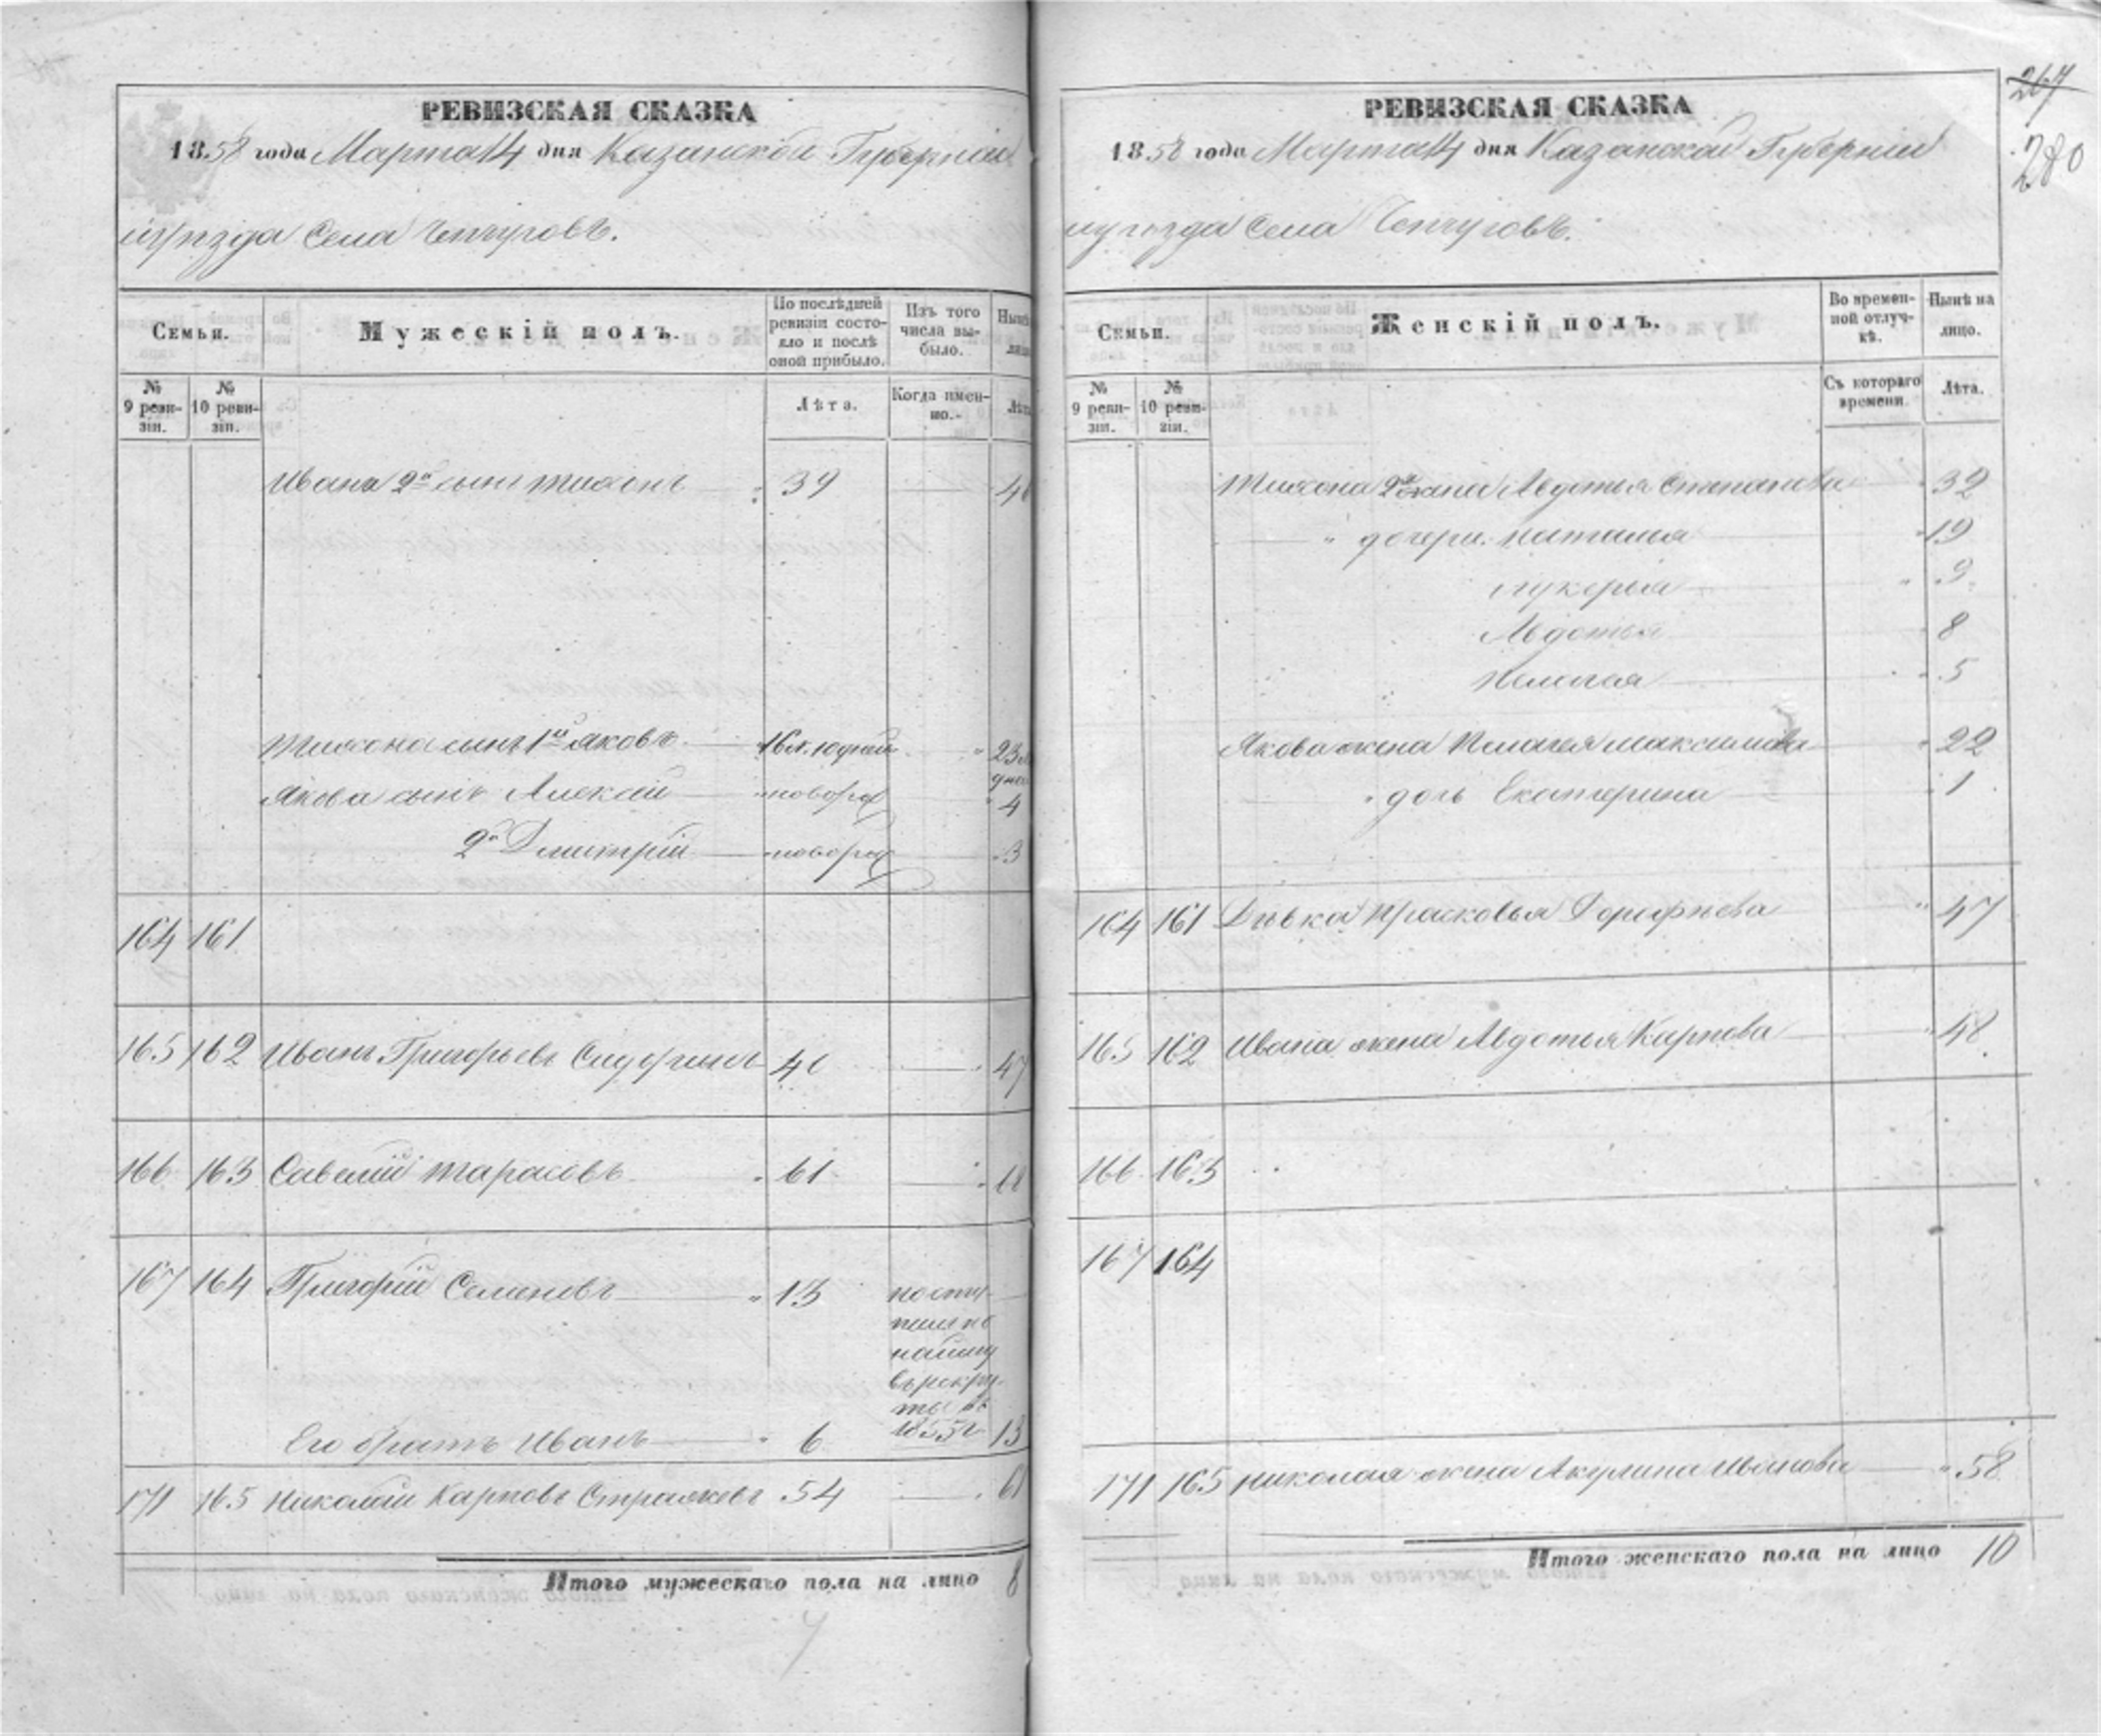 РЕВИЗСКАЯ СКАЗКА
1858 года Марта 14 дня Казанской Губернии
уѣзда Села Чепчуговъ.
Семьи.
Мужескій полъ.
По послѣдней ревизіи состояло и послѣ оной прибыло.
Изъ того числа выбыло.
№ 9 ревизіи.
№ 10 ревизіи.
Лѣта.
Когда именно.
Ивана 2й сынъ Тихонъ 39
Тихона сынъ 1й Яковъ 16 23
Якова сынъ Алексей новорож 4
2й Дмитрій новорож 3
164 161
165 162 Иванъ Григорьевъ 40 47
166 163 Савелій Тарасовъ 61
167 164 Григорій Семеновъ 13 посту-
пилъ по
найму
въ рекру-
ты въ
1855 г
Его братъ Иванъ 6 13
171 165 Николай Карповъ 54 61
Итого мужескаго пола на лицо 8
267
280
РЕВИЗСКАЯ СКАЗКА
1858 года Марта 14 дня Казанской Губерніи
уѣзда Села Чепчуговъ.
Семьи.
Женскій полъ.
Во временной отлучкѣ.
Нынѣ на лицо.
№ 9 ревизіи.
№ 10 ревизіи.
Съ котораго времени.
Лѣта.
Тихона 2я жена Авдотья Степанова 32
дочери: Наталья 19
Лукерья 9
Авдотья 8
Пелагея 5
Якова жена Пелагея Максимова 22
дочь Екатерина 1
164 161 Дѣвка Прасковья Дорофѣева 47
165 162 Ивана жена Авдотья Карпова 48
166 163
167 164
171 165 Николая жена Акулина Иванова 58
Итого женскаго пола на лицо 10